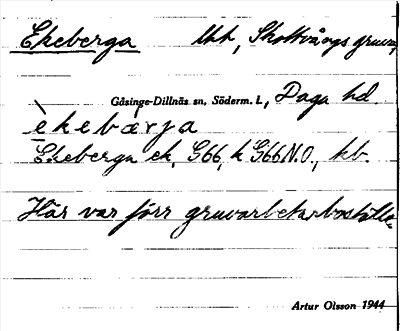 Ekeberga lht, Skottvångs gruva,
Gåsinge-Dillnäs sn, Söderm. l., Daga hd
èkebærja
Ekeberga ek, G66, k G66 N.O., kb.
Här var förr gruvarbetarboställe
Artur Olsson 1944